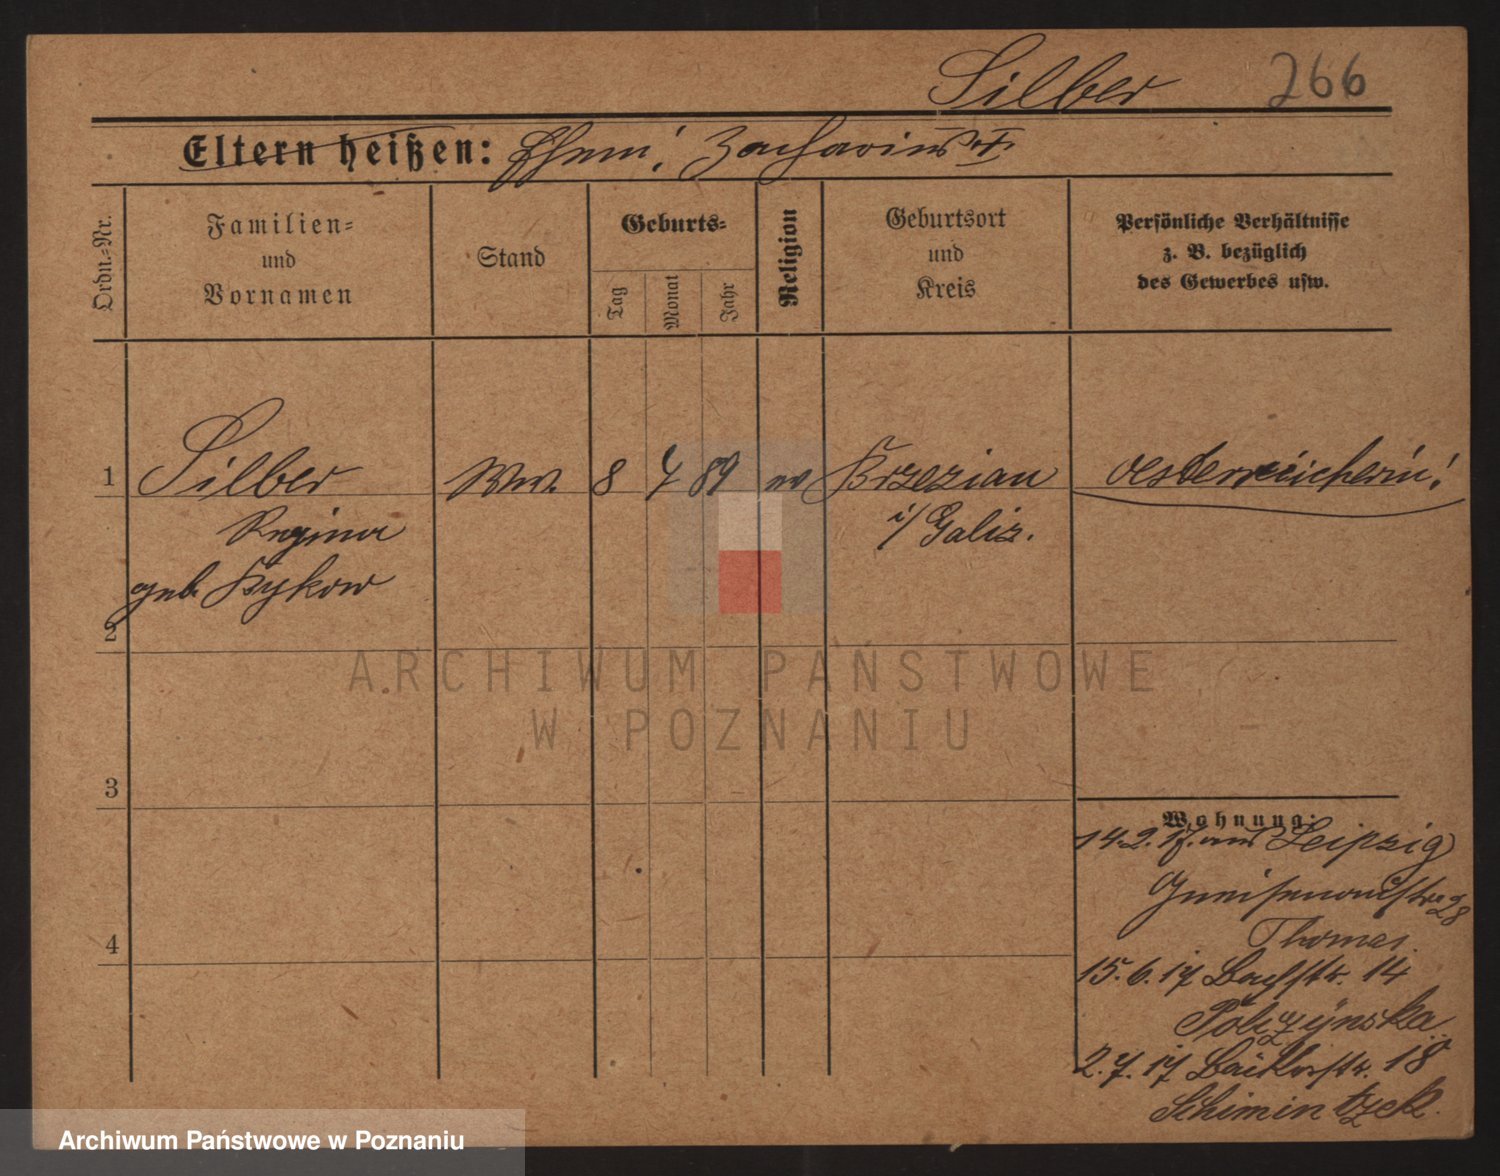 Silber 266
Eltern heißen: Ehem: Zacharias †
Ordn.=Nr.
Familien=
und
Vornamen
Stand
Geburts=
Tag
Monat
Jahr
Religion
Geburtsort
und
Kreis
Persönliche Verhältnisse
z. B. bezüglich
des Gewerbes usw.
1 Silber Ww. 8 4 89 Brzezian oesterreicherin!
Regina i/ Galiz.
geb. Bykow
2
ARCHIWUM PAŃSTWOWE
W POZNANIU
3
Wohnung:
14.2.17. aus Leipzig
Gneisenaustr. 28
Thomas.
4
15.6.17 Bachstr. 14
Polczynska
2.7.17 Bäckerstr. 18
Schimintzek.
Archiwum Państwowe w Poznaniu